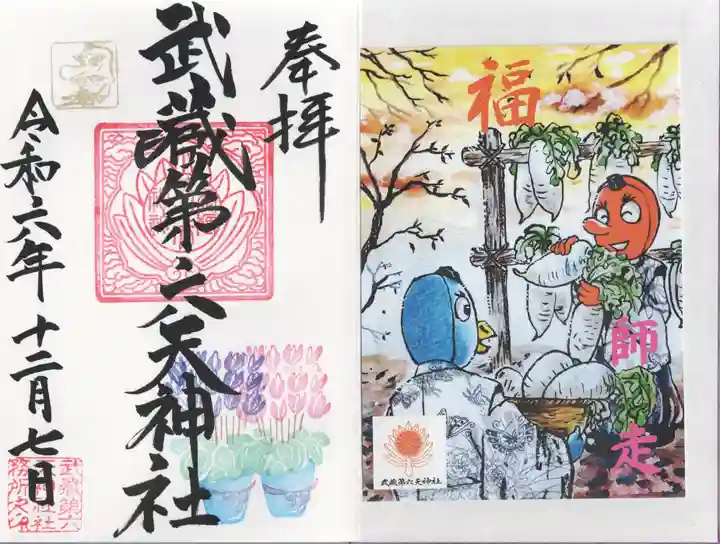 奉拝
武蔵第六天神社
令和六年十二月七日
福
師走
武蔵第六天神社